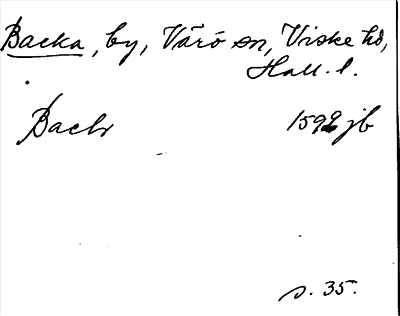 Backa, by, Värö sn, Viske hd,
Hall. l.
Backr 1592 jb
s. 35.